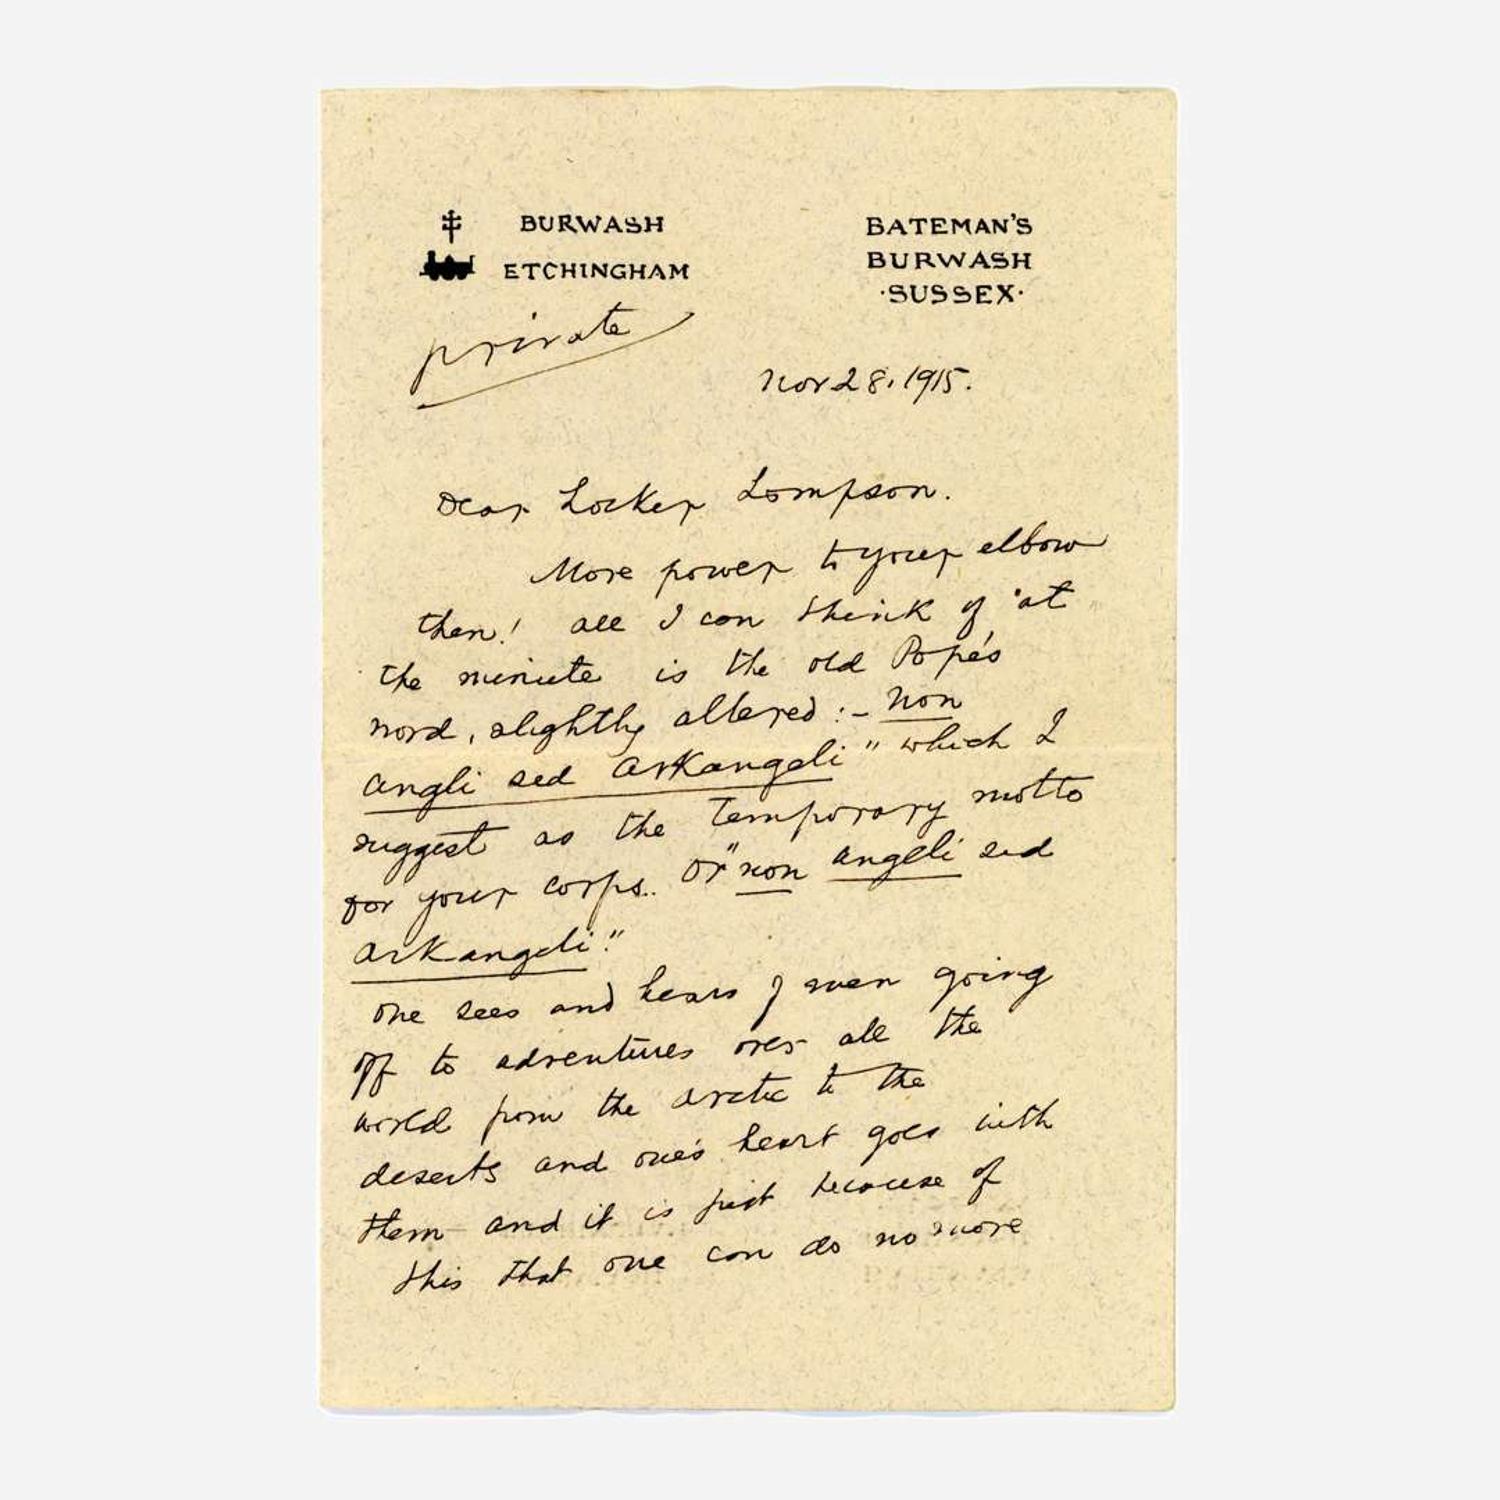 BURWASH
ETCHINGHAM
BATEMAN'S
BURWASH
·SUSSEX·
private
Nov 28. 1915.
Dear Locker Lampson.
More power to your elbow
then! All I can think of at
the minute is the old Pope's
word, slightly altered :- Non
Angli sed Arkangeli" which I
suggest as the temporary motto
for your corps. Or "non angeli sed
Arkangeli."
One sees and hears of men going
off to adventures over all the
world from the Arctic to the
deserts and one's heart goes with
them and it is just because of
this that one can do no more